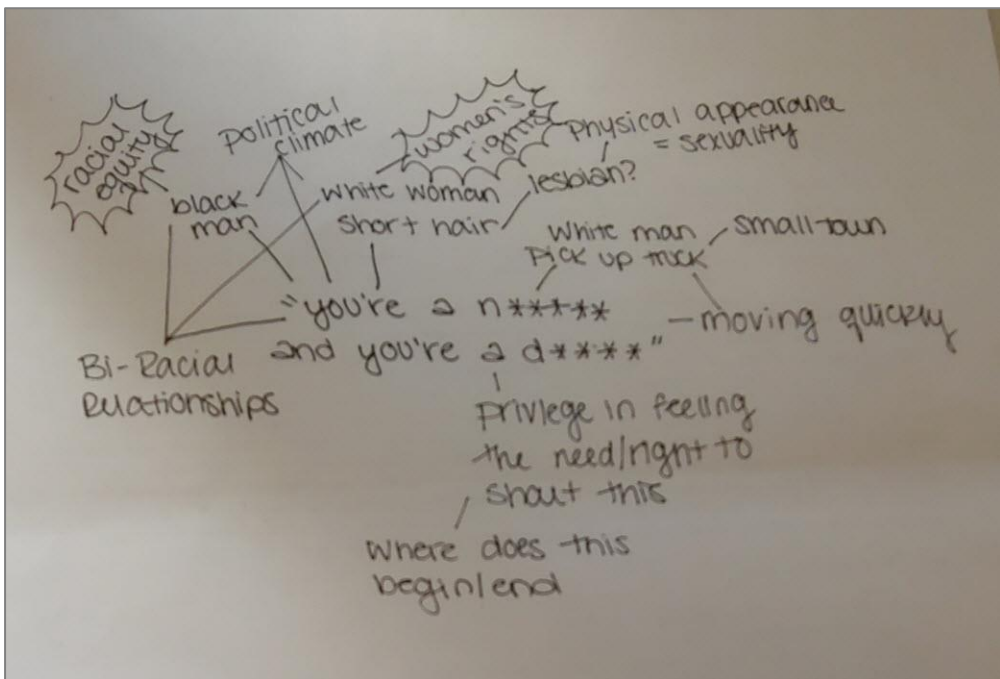 racial
equity
political
climate
women's
rights
Physical appearance
= sexuality
black
man
white woman
short hair
lesbian?
White man
Pick up truck
Small town
"you're a n*****
and you're a d****"
- moving quickly
Bi-Racial
Relationships
privlege in feeling
the need/right to
shout this
where does this
begin/end